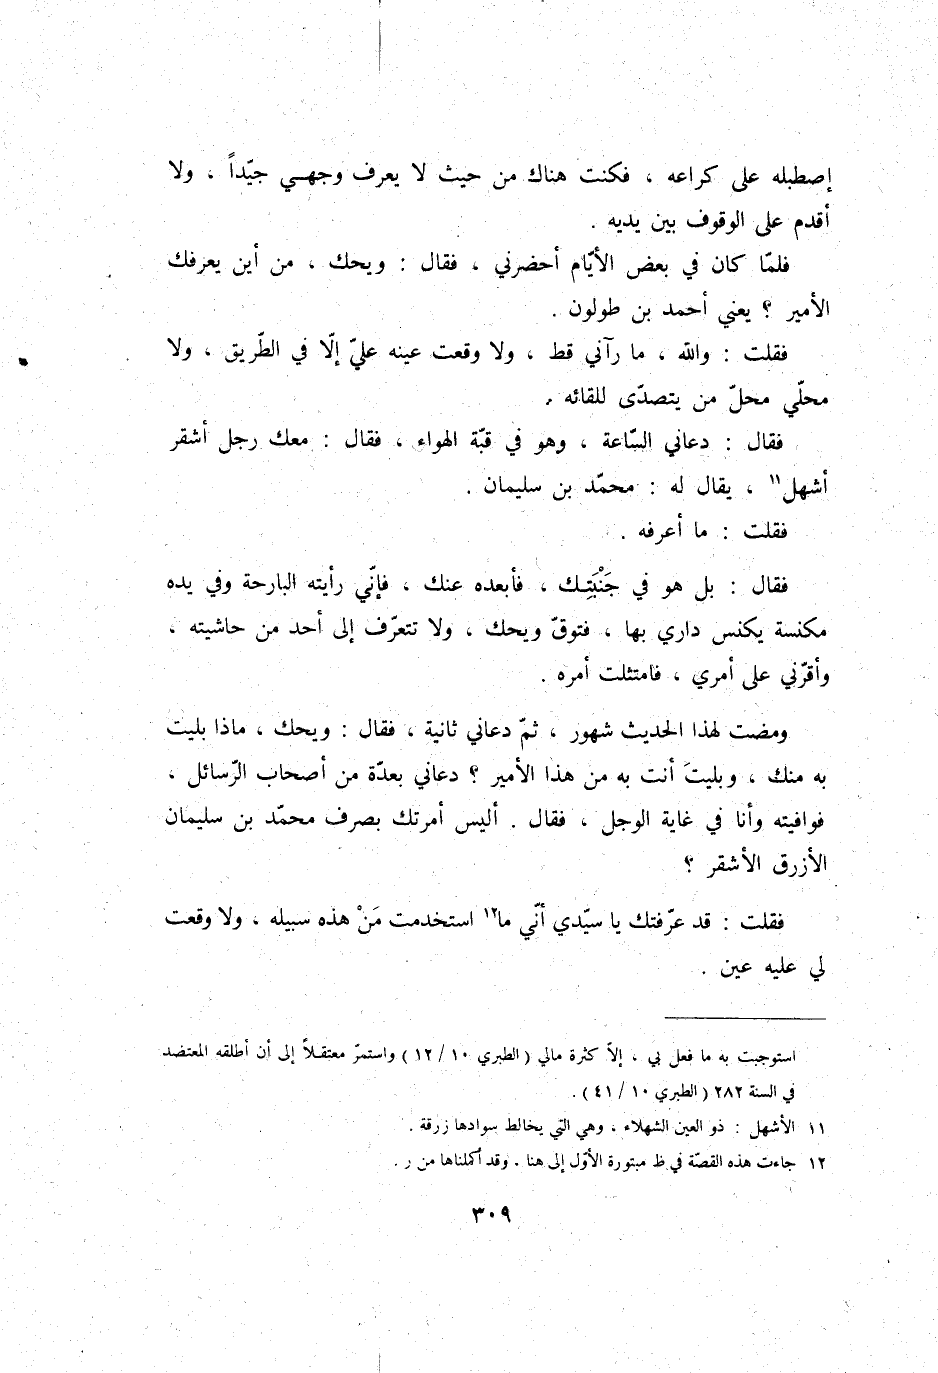 إصطبله على كراعه ، فكنت هناك من حيث لا يعرف وجهي جيّداً ، ولا
أقدم على الوقوف بين يديه .
فلمّا كان في بعض الأيّام أحضرني ، فقال : ويحك ، من أين يعرفك
الأمير ؟ يعني أحمد بن طولون .
فقلت : والله ، ما رآني قط ، ولا وقعت عينه عليّ إلّا في الطّريق ، ولا
محلّي محلّ من يتصدّى للقائه .
فقال : دعاني السّاعة ، وهو في قبّة الهواء ، فقال : معك رجل أشقر
أشهل١١ ، يقال له : محمّد بن سليمان .
فقلت : ما أعرفه .
فقال : بل هو في جَنْبَتِك ، فأبعده عنك ، فإنّي رأيته البارحة وفي يده
مكنسة يكنس داري بها ، فتوقّ ويحك ، ولا تتعرّف إلى أحد من حاشيته ،
وأقرّني على أمري ، فامتثلت أمره .
ومضت لهذا الحديث شهور ، ثمّ دعاني ثانية ، فقال : ويحك ، ماذا بليت
به منك ، وبليتَ أنت به من هذا الأمير ؟ دعاني بعدّة من أصحاب الرّسائل ،
فوافيته وأنا في غاية الوجل ، فقال . أليس أمرتك بصرف محمّد بن سليمان
الأزرق الأشقر ؟
فقلت : قد عرّفتك يا سيّدي أنّي ما١٢ استخدمت مَنْ هذه سبيله ، ولا وقعت
لي عليه عين .
استوجبت به ما فعل بي ، إلاّ كثرة مالي ( الطبري ١٠ / ١٢ ) واستمرّ معتقلاً إلى أن أطلقه المعتضد
في السنة ٢٨٢ ( الطبري ١٠ / ٤١ ) .
١١ الأشهل : ذو العين الشهلاء ، وهي التي يخالط سوادها زرقة .
١٢ جاءت هذه القصّة في ظ مبتورة الأوّل إلى هنا . وقد أكملناها من ر .
٣٠٩